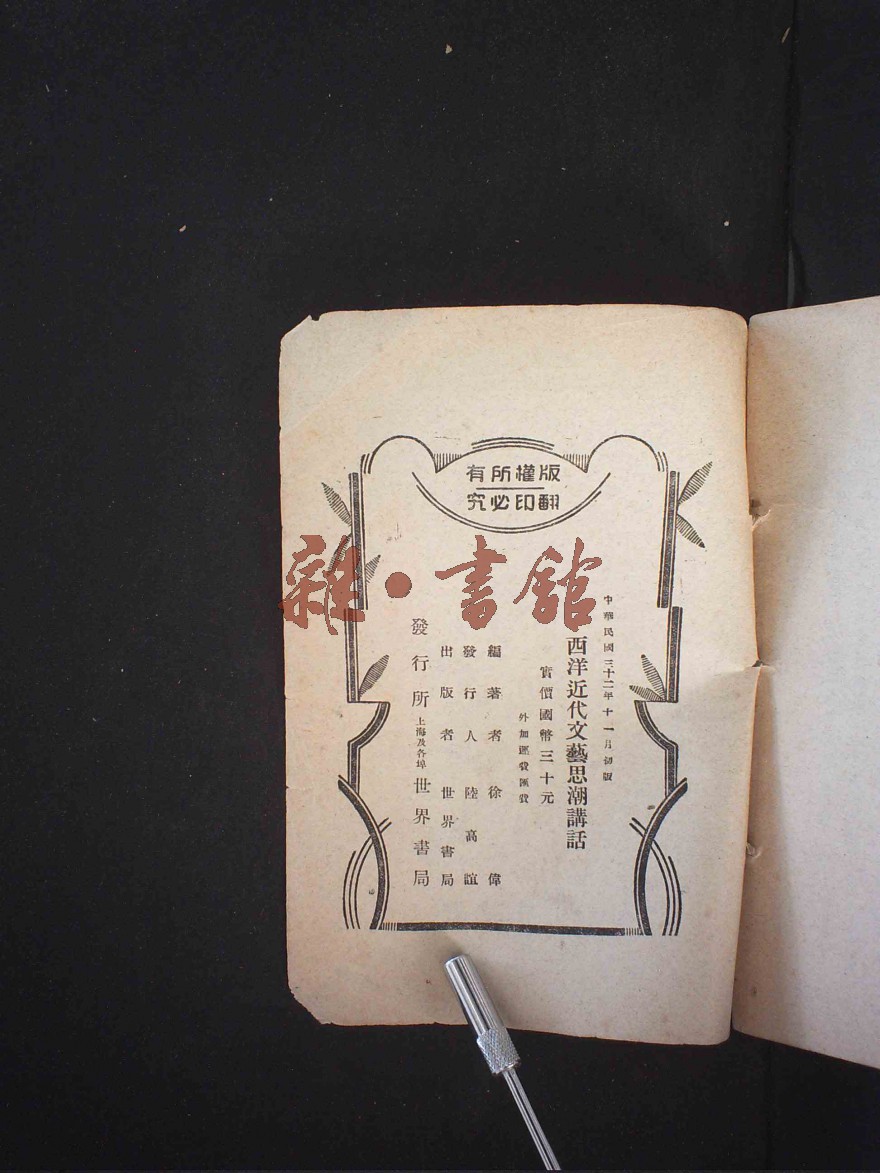 版權所有
翻印必究
中華民國三十二年十一月初版
西洋近代文藝思潮講話
實價國幣三十元
外加運費匯費
編著者 徐偉
發行人 陸高誼
出版者 世界書局
發行所 上海及各埠 世界書局
雜·書館